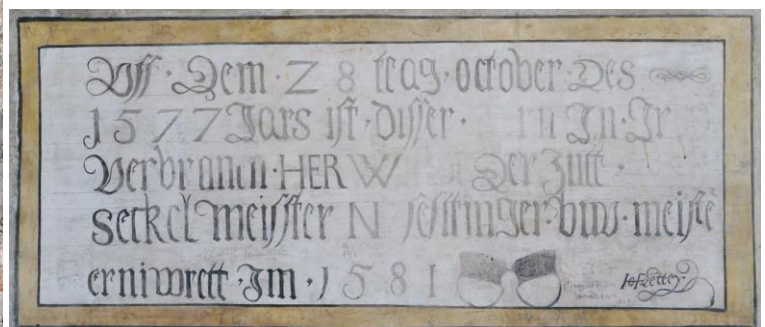 Uff · Dem · Z 8 ttag · october · Des
1577 Jars ist · Disser · In · Ir
Verbranin · HER W Der Zutt ·
Seckel meisster N buw · meiste
erniwrett · Im · 1581